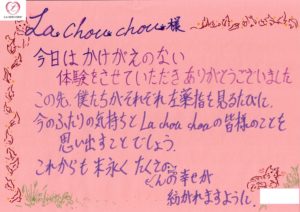 La chou chou様
今日はかけがえのない
体験をさせていただきありがとうございました
この先、僕たちがそれぞれ左薬指を見るたびに、
今のふたりの気持ちとLa chou chouの皆様のことを
思い出すことでしょう。
これからも末永くたくさんの幸せが
紡がれますように。